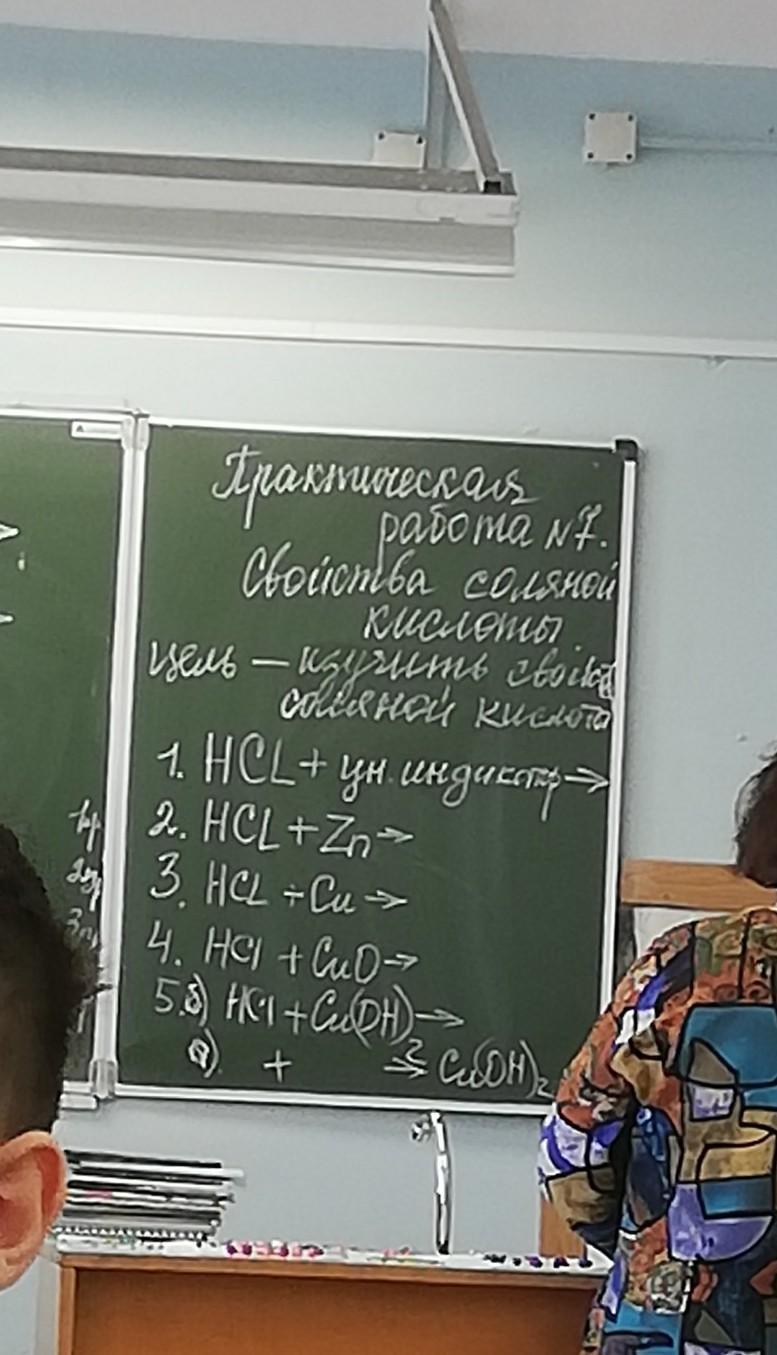 Практическая
работа №7.
Свойства соляной
кислоты
Цель — изучить свойства
соляной кислоты
1. HCL + ун. индикатр →
2. HCL + Zn →
3. HCL + Cu →
4. HCl + CuO →
5. б) HCl + Cu(OH)2 →
а) + → Cu(OH)2